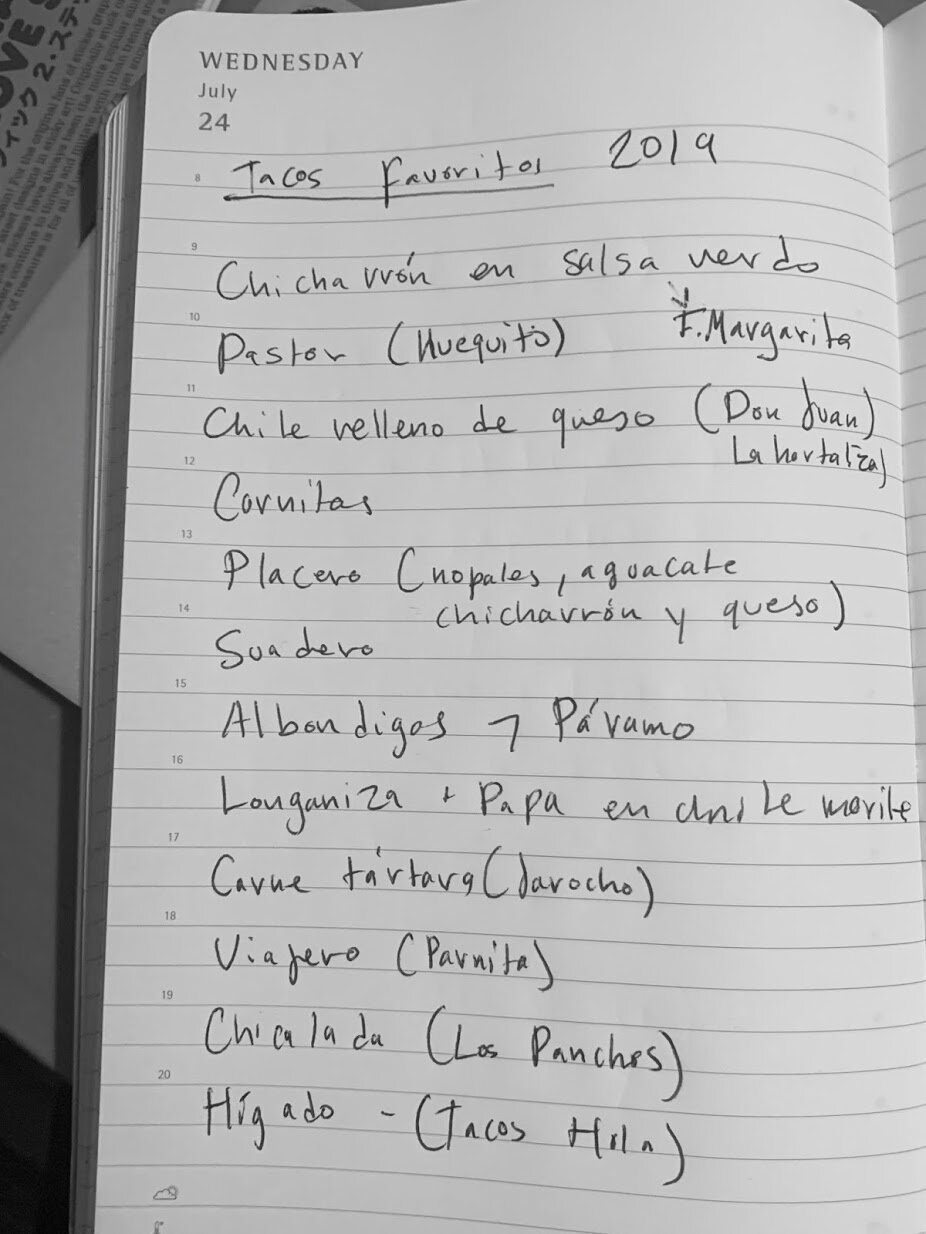 WEDNESDAY
July
24
8 Tacos favoritos 2019
9 Chicharrón en salsa verde
10 Pastor (Huequito) F. Margarita
11 Chile relleno de queso (Don Juan)
La hortaliza)
12 Carnitas
13 Placero (nopales, aguacate
14 chicharrón y queso)
Suadero
15 Albondigas → Páramo
16 Longaniza + Papa en chile morita
17 Carne tártara (Jarocho)
18 Viajero (Parnita)
19 Chicalada (Los Panchos)
20 Hígado - (Tacos Hola)